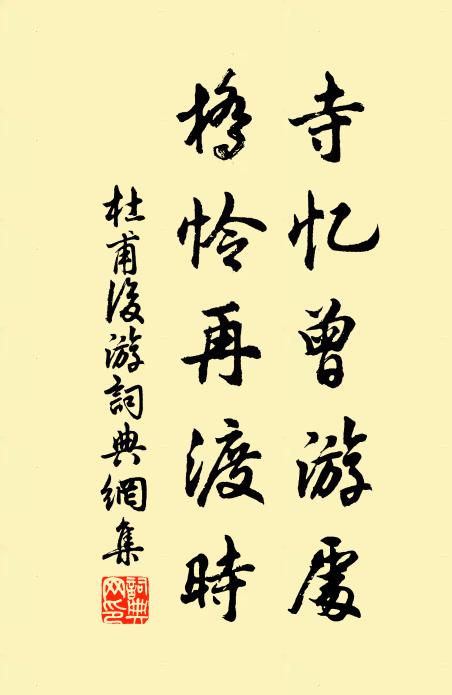 寺忆曾游處
橋怜再渡時
杜甫後游詞典網集
詞典
网印